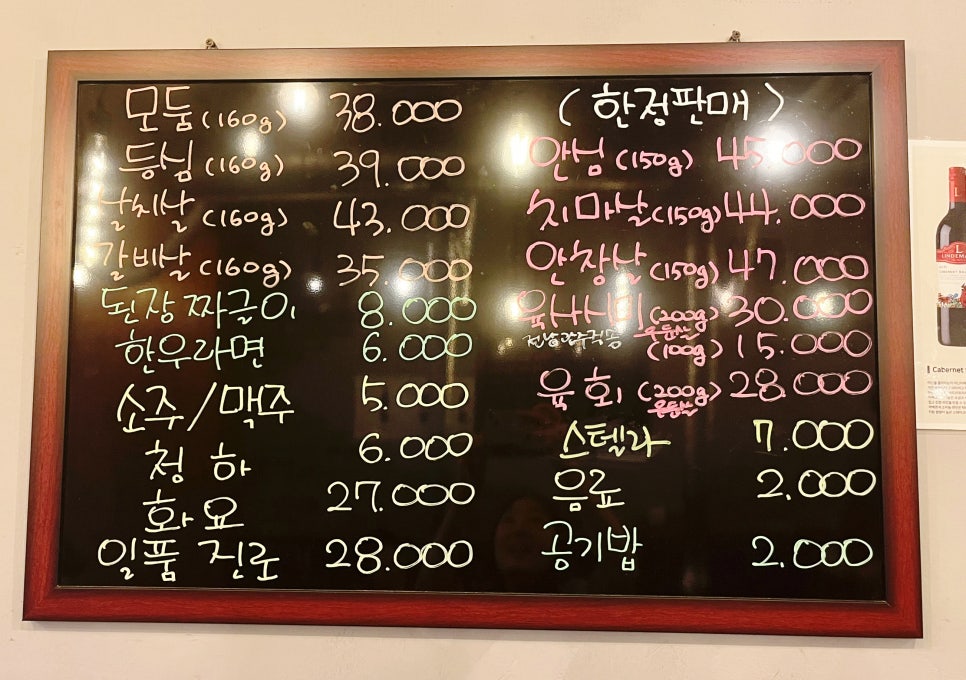 모둠(160g) 38.000
등심(160g) 39.000
살치살(160g) 43.000
갈비살(160g) 35.000
된장 짜글이 8.000
한우라면 6.000
소주/맥주 5.000
청하 6.000
화요 27.000
일품 진로 28.000
(한정판매)
안심(150g) 45.000
치마살(150g) 44.000
안창살(150g) 47.000
육사시미(200g) 30.000
우둔살
(100g) 15.000
육회(200g) 28.000
우둔살
스텔라 7.000
음료 2.000
공기밥 2.000
Cabernet